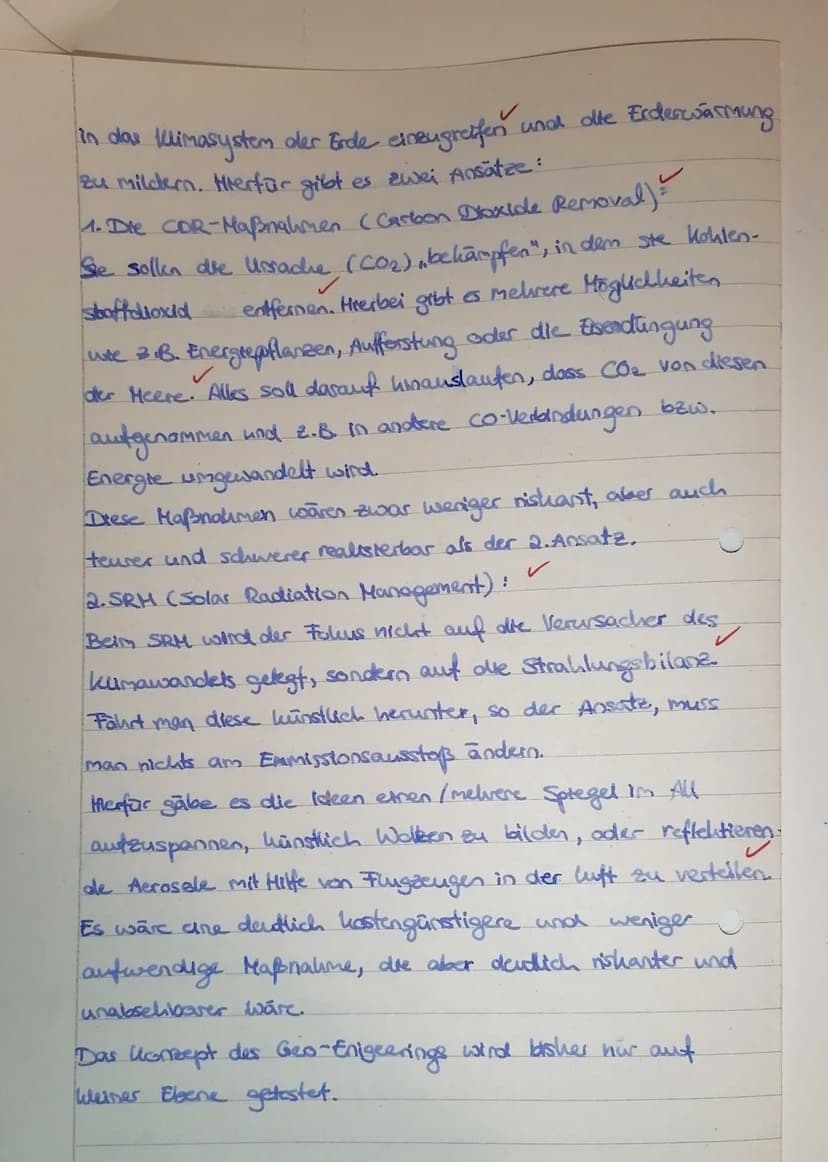 in das Klimasystem der Erde einzugreifen und die Erderwärmung
zu mildern. Hierfür gibt es zwei Ansätze:
1. Die CDR-Maßnahmen (Carbon Dioxide Removal):
Sie sollen die Ursache (CO2) „bekämpfen", in dem sie Kohlen-
stoffdioxid entfernen. Hierbei gibt es mehrere Möglichkeiten
wie z.B. Energiepflanzen, Aufforstung oder die Eisendüngung
der Meere. Alles soll darauf hinauslaufen, dass CO2 von diesen
aufgenommen und z.B. in andere CO-Verbindungen bzw.
Energie umgewandelt wird.
Diese Maßnahmen wären zwar weniger riskant, aber auch
teurer und schwerer realisierbar als der 2. Ansatz.
2. SRM (Solar Radiation Management):
Beim SRM wird der Fokus nicht auf die Verursacher des
Klimawandels gelegt, sondern auf die Strahlungsbilanz.
Fährt man diese künstlich herunter, so der Ansatz, muss
man nichts am Emmissionsausstoß ändern.
Hierfür gäbe es die Ideen einen/mehrere Spiegel im All
aufzuspannen, künstlich Wolken zu bilden, oder reflektieren-
de Aerosole mit Hilfe von Flugzeugen in der Luft zu verteilen.
Es wäre eine deutlich kostengünstigere und weniger
aufwendige Maßnahme, die aber deutlich riskanter und
unabsehbarer wäre.
Das Konzept des Geo-Enigeerings wird bisher nur auf
kleiner Ebene getestet.